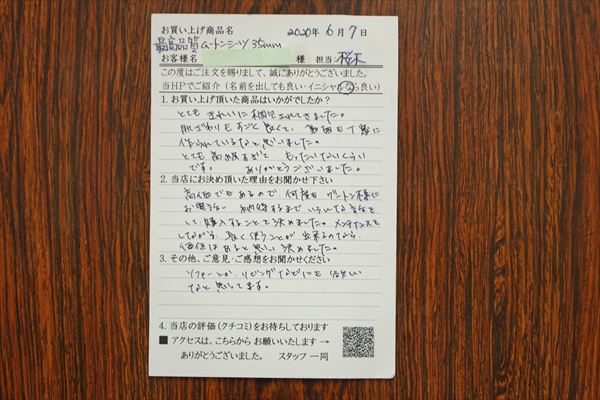 お買い上げ商品名 2020年 6月 7日
最高品質ムートンシーツ 35mm
お客様名 様 担当:
この度はご注文を賜りまして、誠にありがとうございました。
当HPでご紹介（名前を出しても良い・イニシャルなら良い）
1. お買い上げ頂いた商品はいかがでしたか？
とても きれいに梱包されてきました。
肌ざわりもすごく良くて、 も丁寧に
作られているなと思いました。
とても高級すぎて もったいないくらい
です。 ありがとうございました。
2. 当店にお決め頂いた理由をお聞かせ下さい
高価でもあるので、何度も 様に
お電話し 納得するまで いろんな 話を
して、購入することで決めました。メンテナンスを
しながら、長く使うことが出来るのなら、
価値はあると思い 決めました。
3. その他、ご意見・ご感想をお聞かせください
ソファーとか、リビングなどにも ほしい
なと思ってます。
4. 当店の評価（クチコミ）をお待ちしております
■ アクセスは、こちらから お願いいたします →
ありがとうございました。 スタッフ 一同